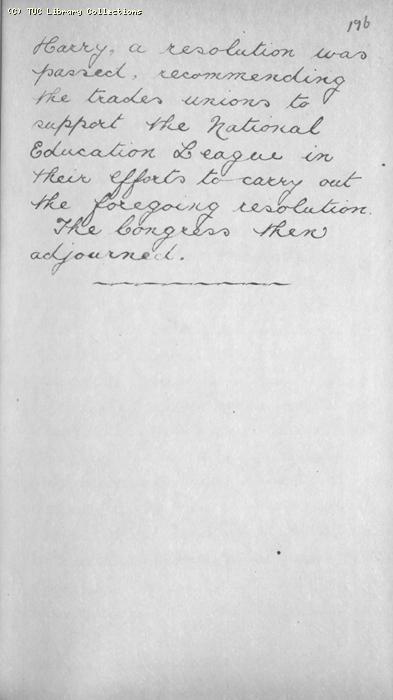 (C) TUC Library Collections
196
Harry, a resolution was
passed, recommending
the trades unions to
support the National
Education League in
their efforts to carry out
the foregoing resolution.
The Congress then
adjourned.